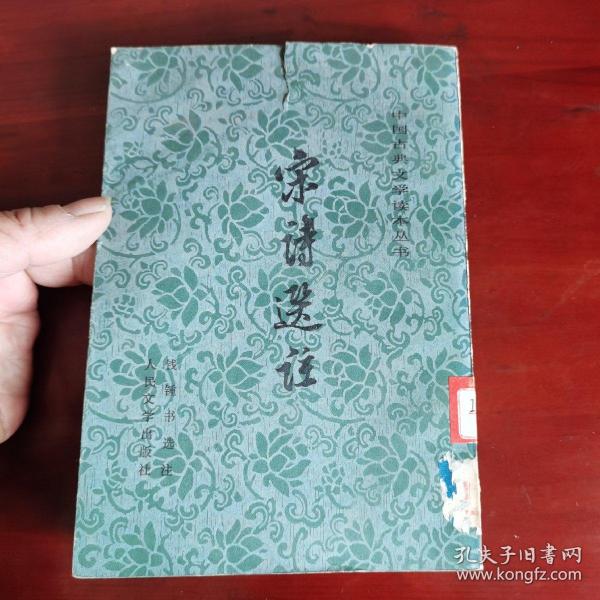 中国古典文学读本丛书
宋诗选注
钱锺书选注
人民文学出版社
1
孔夫子旧书网
www.kongfz.com